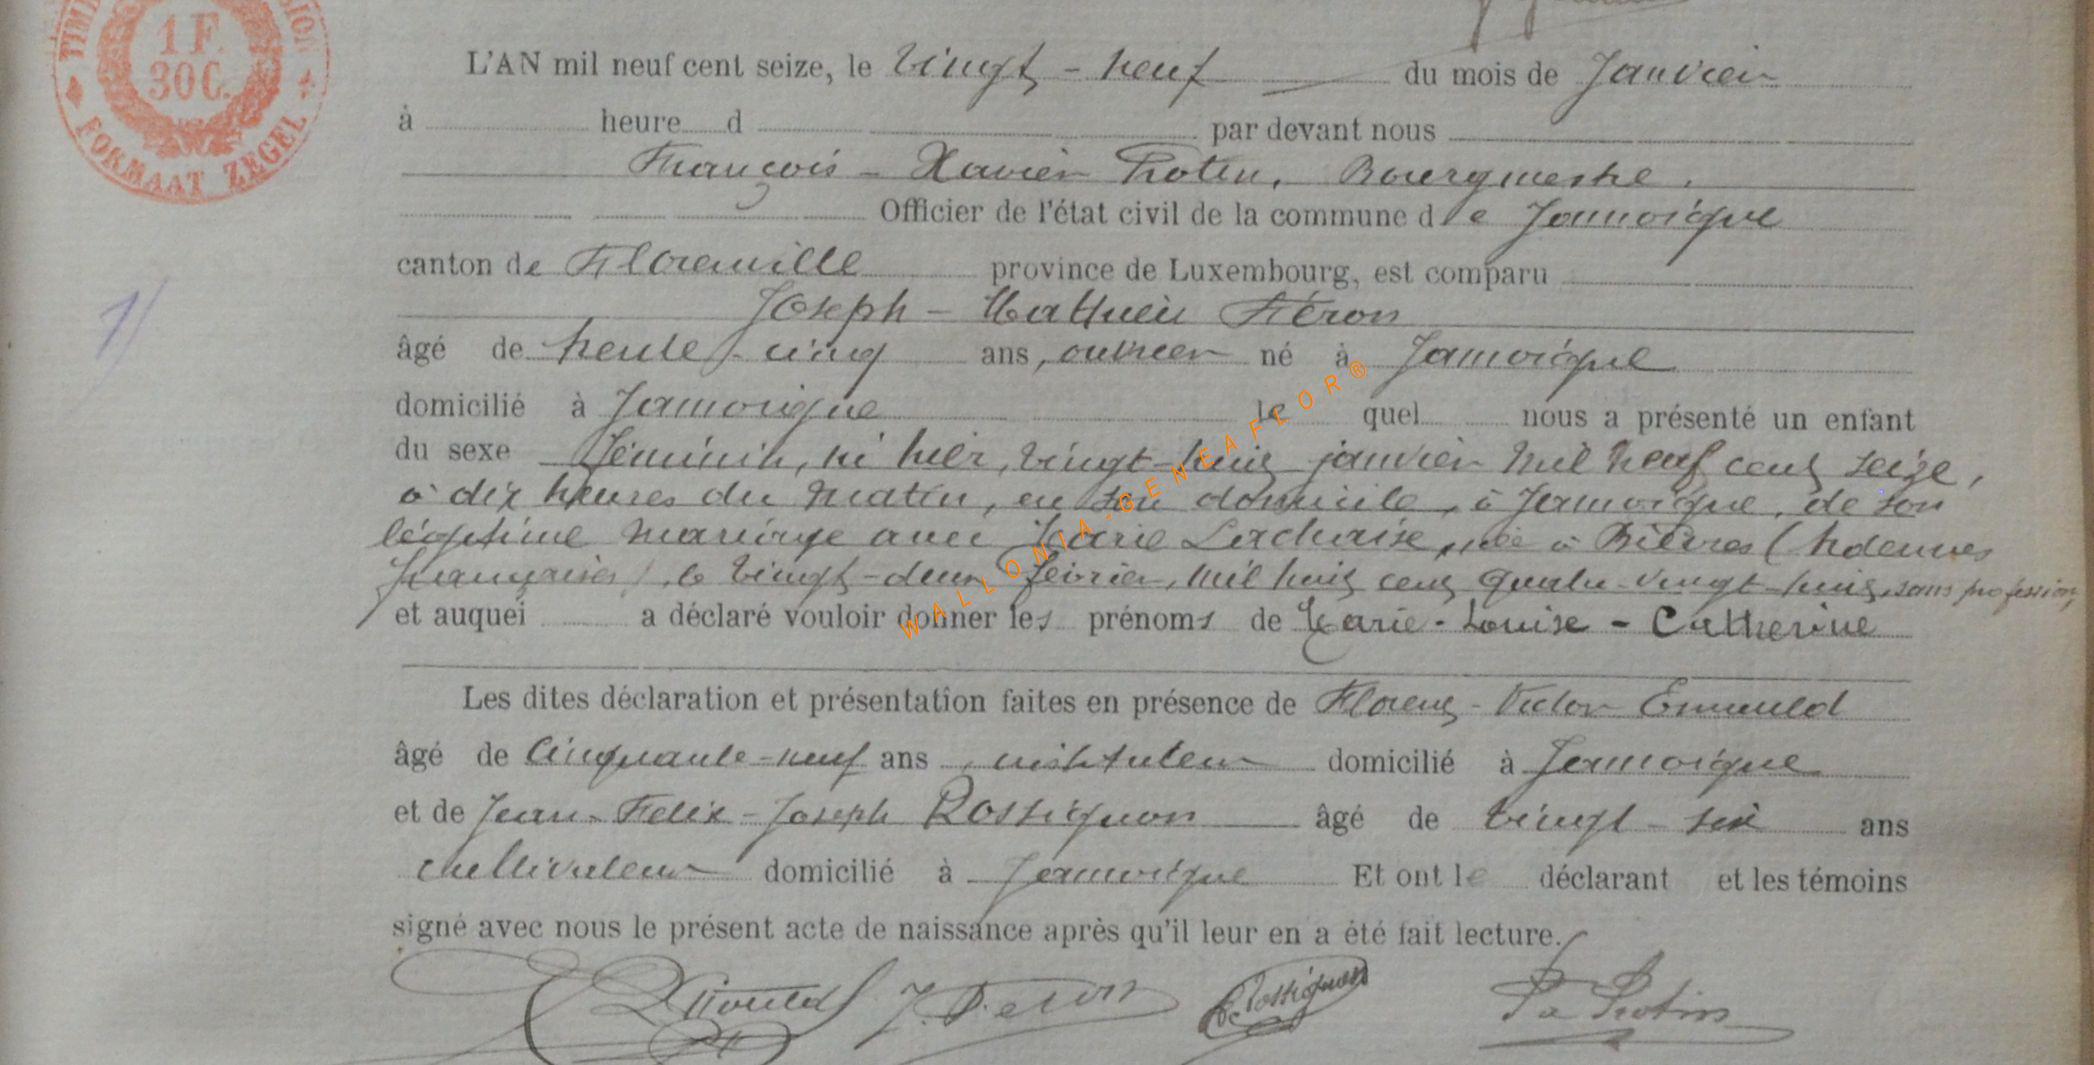 1 F.
30 C.
FORMAAT ZEGEL
L'AN mil neuf cent seize, le vingt-neuf du mois de Janvier
à heure d par devant nous
François-Xavier Protin, Bourgmestre,
Officier de l'état civil de la commune de Jamoigne
canton de Florenville province de Luxembourg, est comparu
1/
Joseph-Mathieu Féron
âgé de trente-cinq ans, ouvrier né à Jamoigne
domicilié à Jamoigne le quel nous a présenté un enfant
du sexe féminin, né hier, vingt-huit janvier mil neuf cent seize,
à dix heures du matin, en son domicile, à Jamoigne, de son
légitime mariage avec Marie Lachaise, née à Bièvres (Ardennes
françaises), le vingt-deux février, mil huit cent quatre-vingt-huit, sans profession,
et auquel a déclaré vouloir donner les prénoms de Marie-Louise-Catherine
WALLONIA-GENEAFLOR®
Les dites déclaration et présentation faites en présence de Florent-Victor
âgé de cinquante-neuf ans, instituteur domicilié à Jamoigne
et de Jean-Felix-Joseph Rossignon âgé de vingt-six ans
cultivateur domicilié à Jamoigne Et ont le déclarant et les témoins
signé avec nous le présent acte de naissance après qu'il leur en a été fait lecture.
J. Feron Rossignon Protin